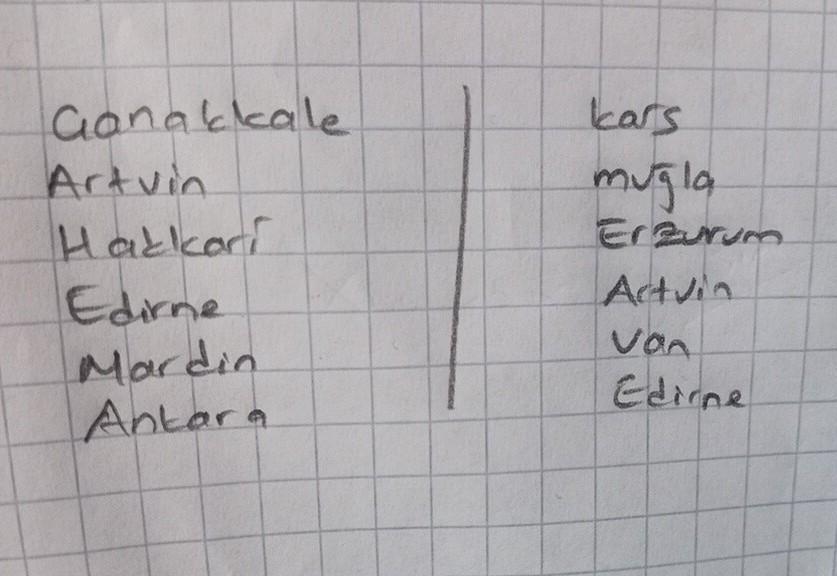 Çanakkale
Artvin
Hakkari
Edirne
Mardin
Ankara
kars
muğla
Erzurum
Artvin
Van
Edirne